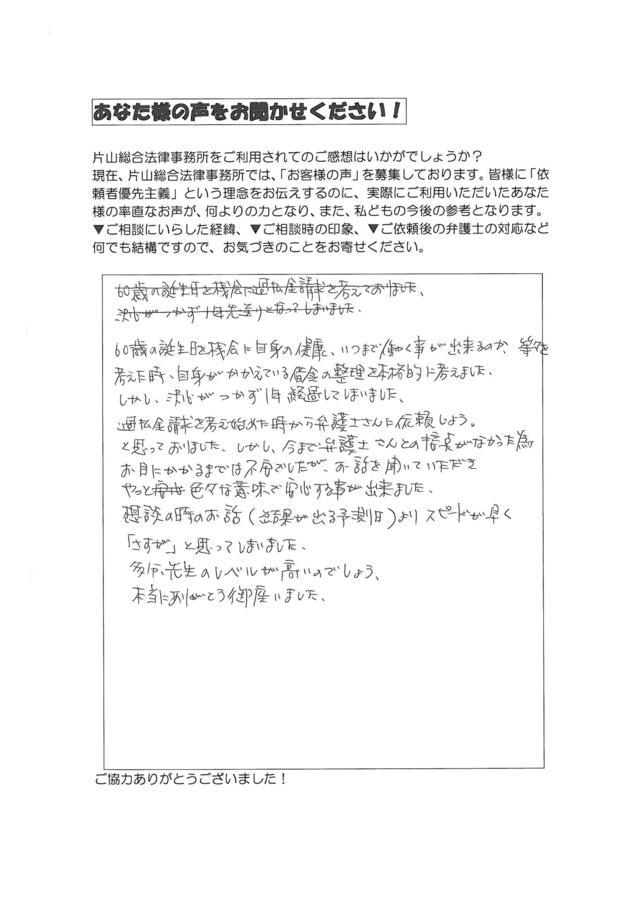 あなた様の声をお聞かせください!
片山総合法律事務所をご利用されてのご感想はいかがでしょうか?
現在、片山総合法律事務所では、「お客様の声」を募集しております。皆様に「依
頼者優先主義」という理念をお伝えするのに、実際にご利用いただいたあなた
様の率直なお声が、何よりの力となり、また、私どもの今後の参考となります。
▼ご相談にいらした経緯、▼ご相談時の印象、▼ご依頼後の弁護士の対応など
何でも結構ですので、お気づきのことをお寄せください。
60歳の誕生日を残念に過払金請求を考えておりました、
決心がつかず1年先送りとなってしまいました.
60歳の誕生日を残念に自身の健康、いつまで働く事が出来るのか、等々を
考えた時、自身がかかえている借金の整理を本格的に考えました、
しかし、決心がつかず1年経過してしまいました、
過払金請求を考え始めた時から弁護士さんに依頼しよう。
と思っておりました、しかし、今まで弁護士さんとの接点がなかった為
お目にかかるまでは不安でしたが、お話を聞いていただき
やっと 色々な意味で安心する事が出来ました、
想談の時のお話(結果が出る予測日)より スピードが早く
「さすが」と思ってしまいました.
多分、先生のレベルが高いのでしょう、
本当に有りがとう御座いました、
ご協力ありがとうございました!